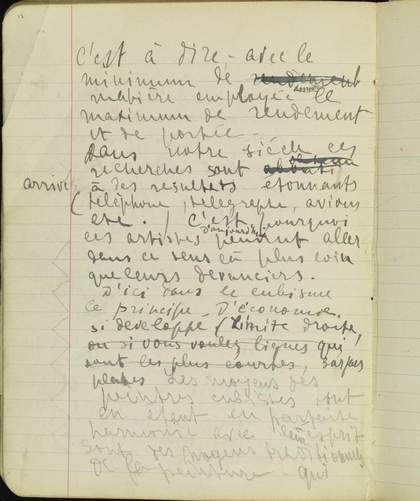 c'est à dire, avec le
minimum de rendement
matière employée donner le
maximum de rendement
et de portée -
Dans notre siècle ces
recherches sont abouti
arrivé à des resultats étonnants
(téléphone, telegraphe, avions
etc.) C'est pourquoi
ces artistes d'aujourd'hui peuvent aller
dans ce sens là plus loin
que leurs devanciers.
D'ici dans le cubisme
ce principe D'économie
si developpé (limite droite,
ou si vous voulez lignes qui
sont les plus courtes, surfaces
plates Les moyens des
peintres cubistes, tout
en étant en parfaite
harmonie avec leur esprit
sont des moyens traditionnels
de la peinture qui